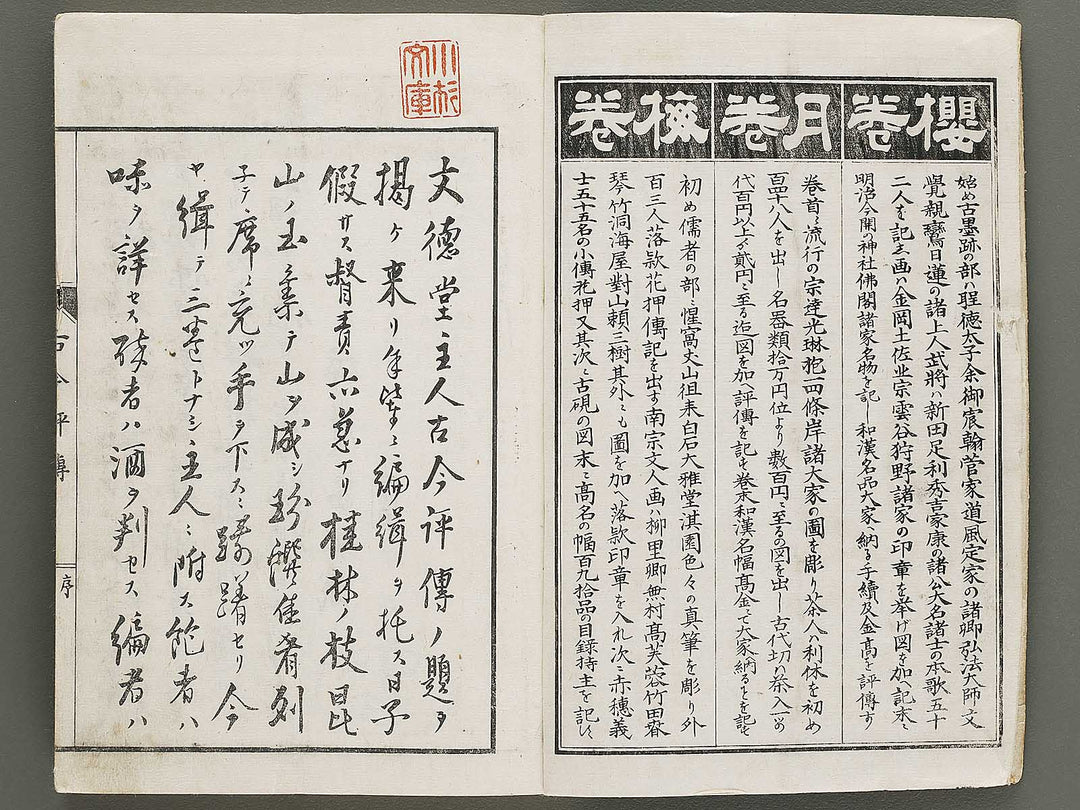 櫻卷
始め古墨跡の部ハ聖徳太子余御宸翰菅家道風定家の諸卿弘法大師文
覺親鸞日蓮の諸上人武將ハ新田足利秀吉家康の諸公大名諸士の本歌五十
二人を記し画ハ金岡土佐光宗雲谷狩野諸家の印章を挙げ図を加へ記末ニ
明治今開の神社佛閣諸家名物を記し和漢名品大家ニ納る手續及金高を評傳す
月卷
卷首ニ流行の宗達光琳抱一四條岸諸大家の圖を彫り茶人ハ利休を初め
百四十八人を出し名器類拾万円位より数百円ニ至るの図を出し古代切ハ茶入一の
代百円以上ゟ貮円ニ至る迄図を加へ評傳を記も卷末和漢名幅髙金ニて大家納るとを記も
梅卷
初め儒者の部ニ惺窩丈山徂来白石大雅堂淇園色々の真筆を彫り外
百三人ニ落款花押傳記を出す南宗文人画ハ柳里卿無村髙芙蓉竹田春
琴竹洞海屋對山頼三樹其外ニも圖を加へ落款印章を入れ次ニ赤穗義
士五十五名の小傳花押又其次ニ古硯の図末ニ髙名の幅百九拾品の目録持主を記し
川杉文庫
文德堂主人古今評傳ノ題ヲ
揭ケ来リ余ニ編緝ヲ托ス日子
假サス督責六急ナリ桂林ノ枝昆
山ノ玉集テ山ヲ成シ珍饌佳肴列
子テ席ニ充ツ手ヲ下スニ躊躇セリ今
ヤ緝テ三卷トナシ主人ニ附ス飽者ハ
味ヲ詳セス酔者ハ酒ヲ判セス編者ハ
古今評傳
序